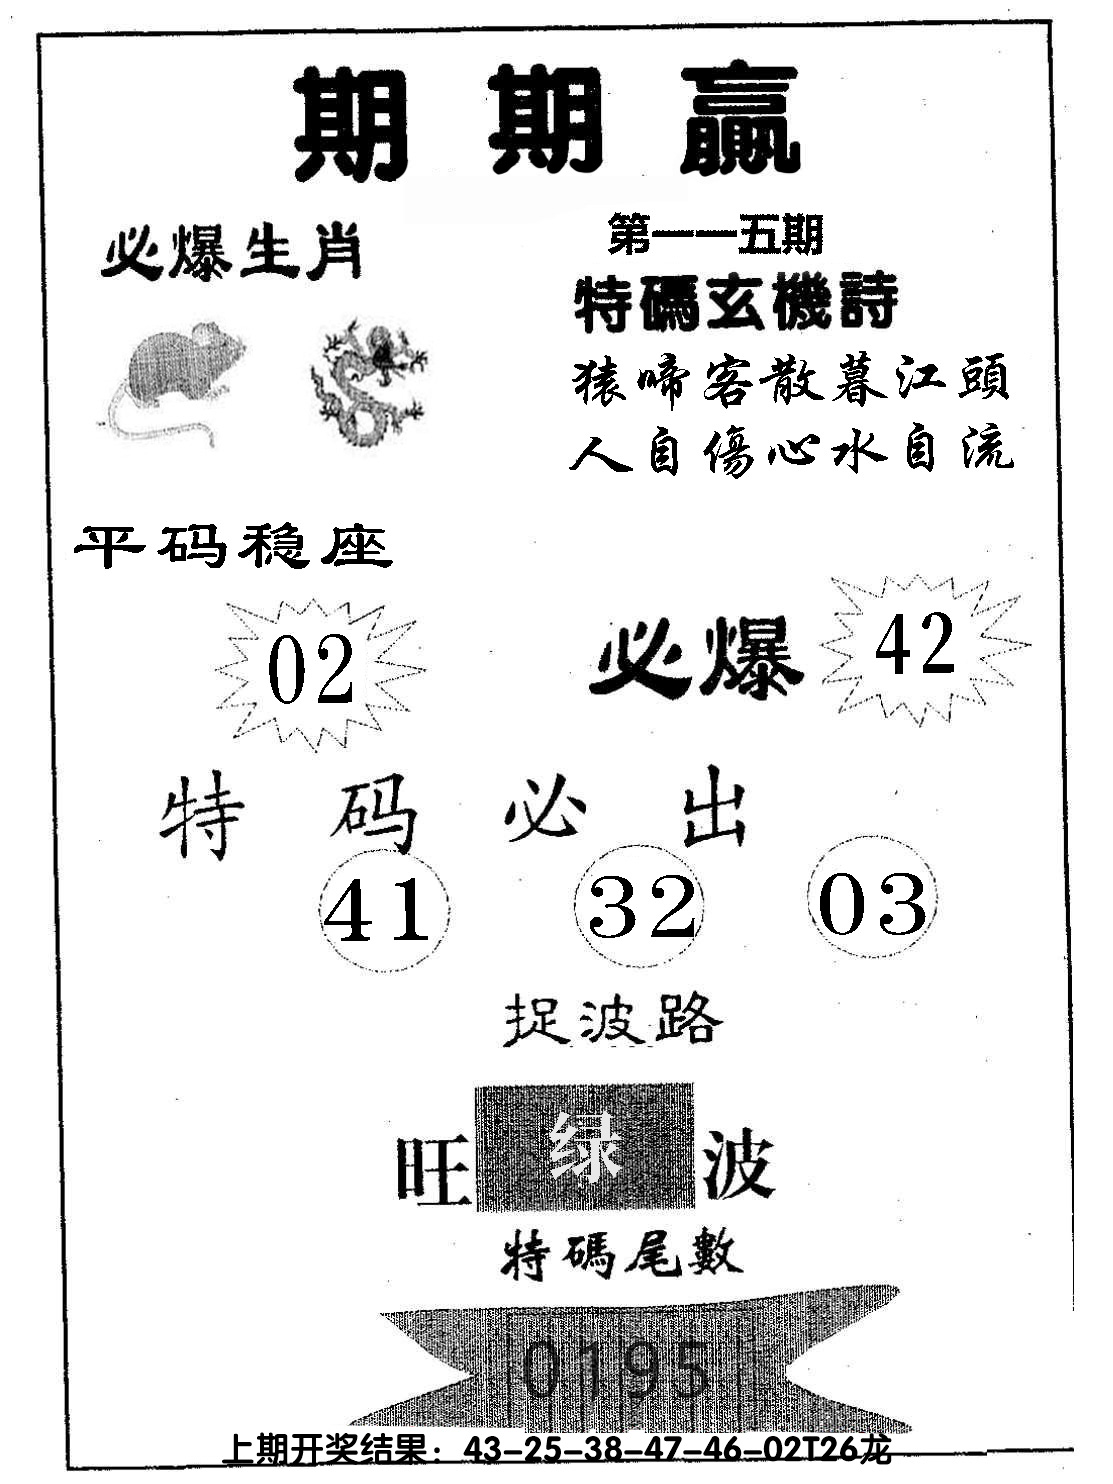 期期赢
第一一五期
必爆生肖
特碼玄機詩
猿啼客散暮江頭
人自傷心水自流
平码稳座
02
必爆 42
特码必出
41 32 03
捉波路
旺 绿 波
特碼尾數
0195
上期开奖结果：43-25-38-47-46-02T26龙